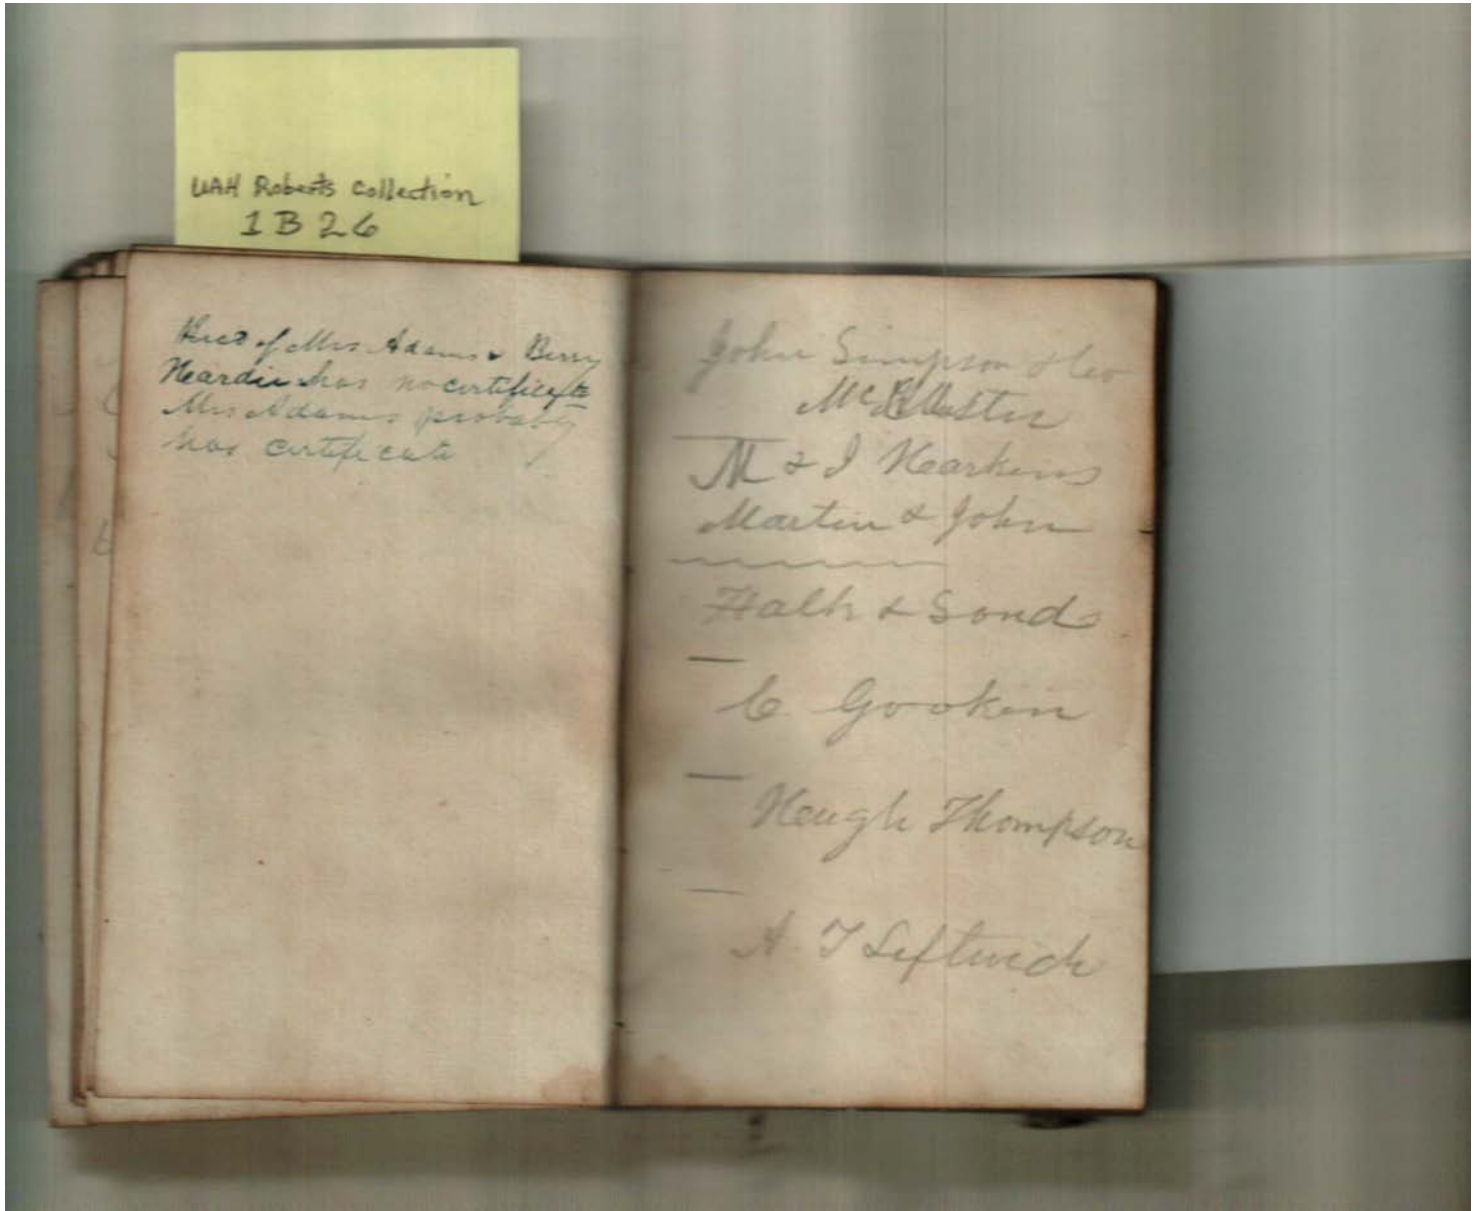 UAH Roberts Collection
1B26
of Mrs Adams & Berry
has no certificate
Mrs Adams probably
has certificate
John Simpson & Geo
Mc
M & J Hearkens
Martin & John
& Sond
C Gookin
Heugh Thompson
A. T Leftwich